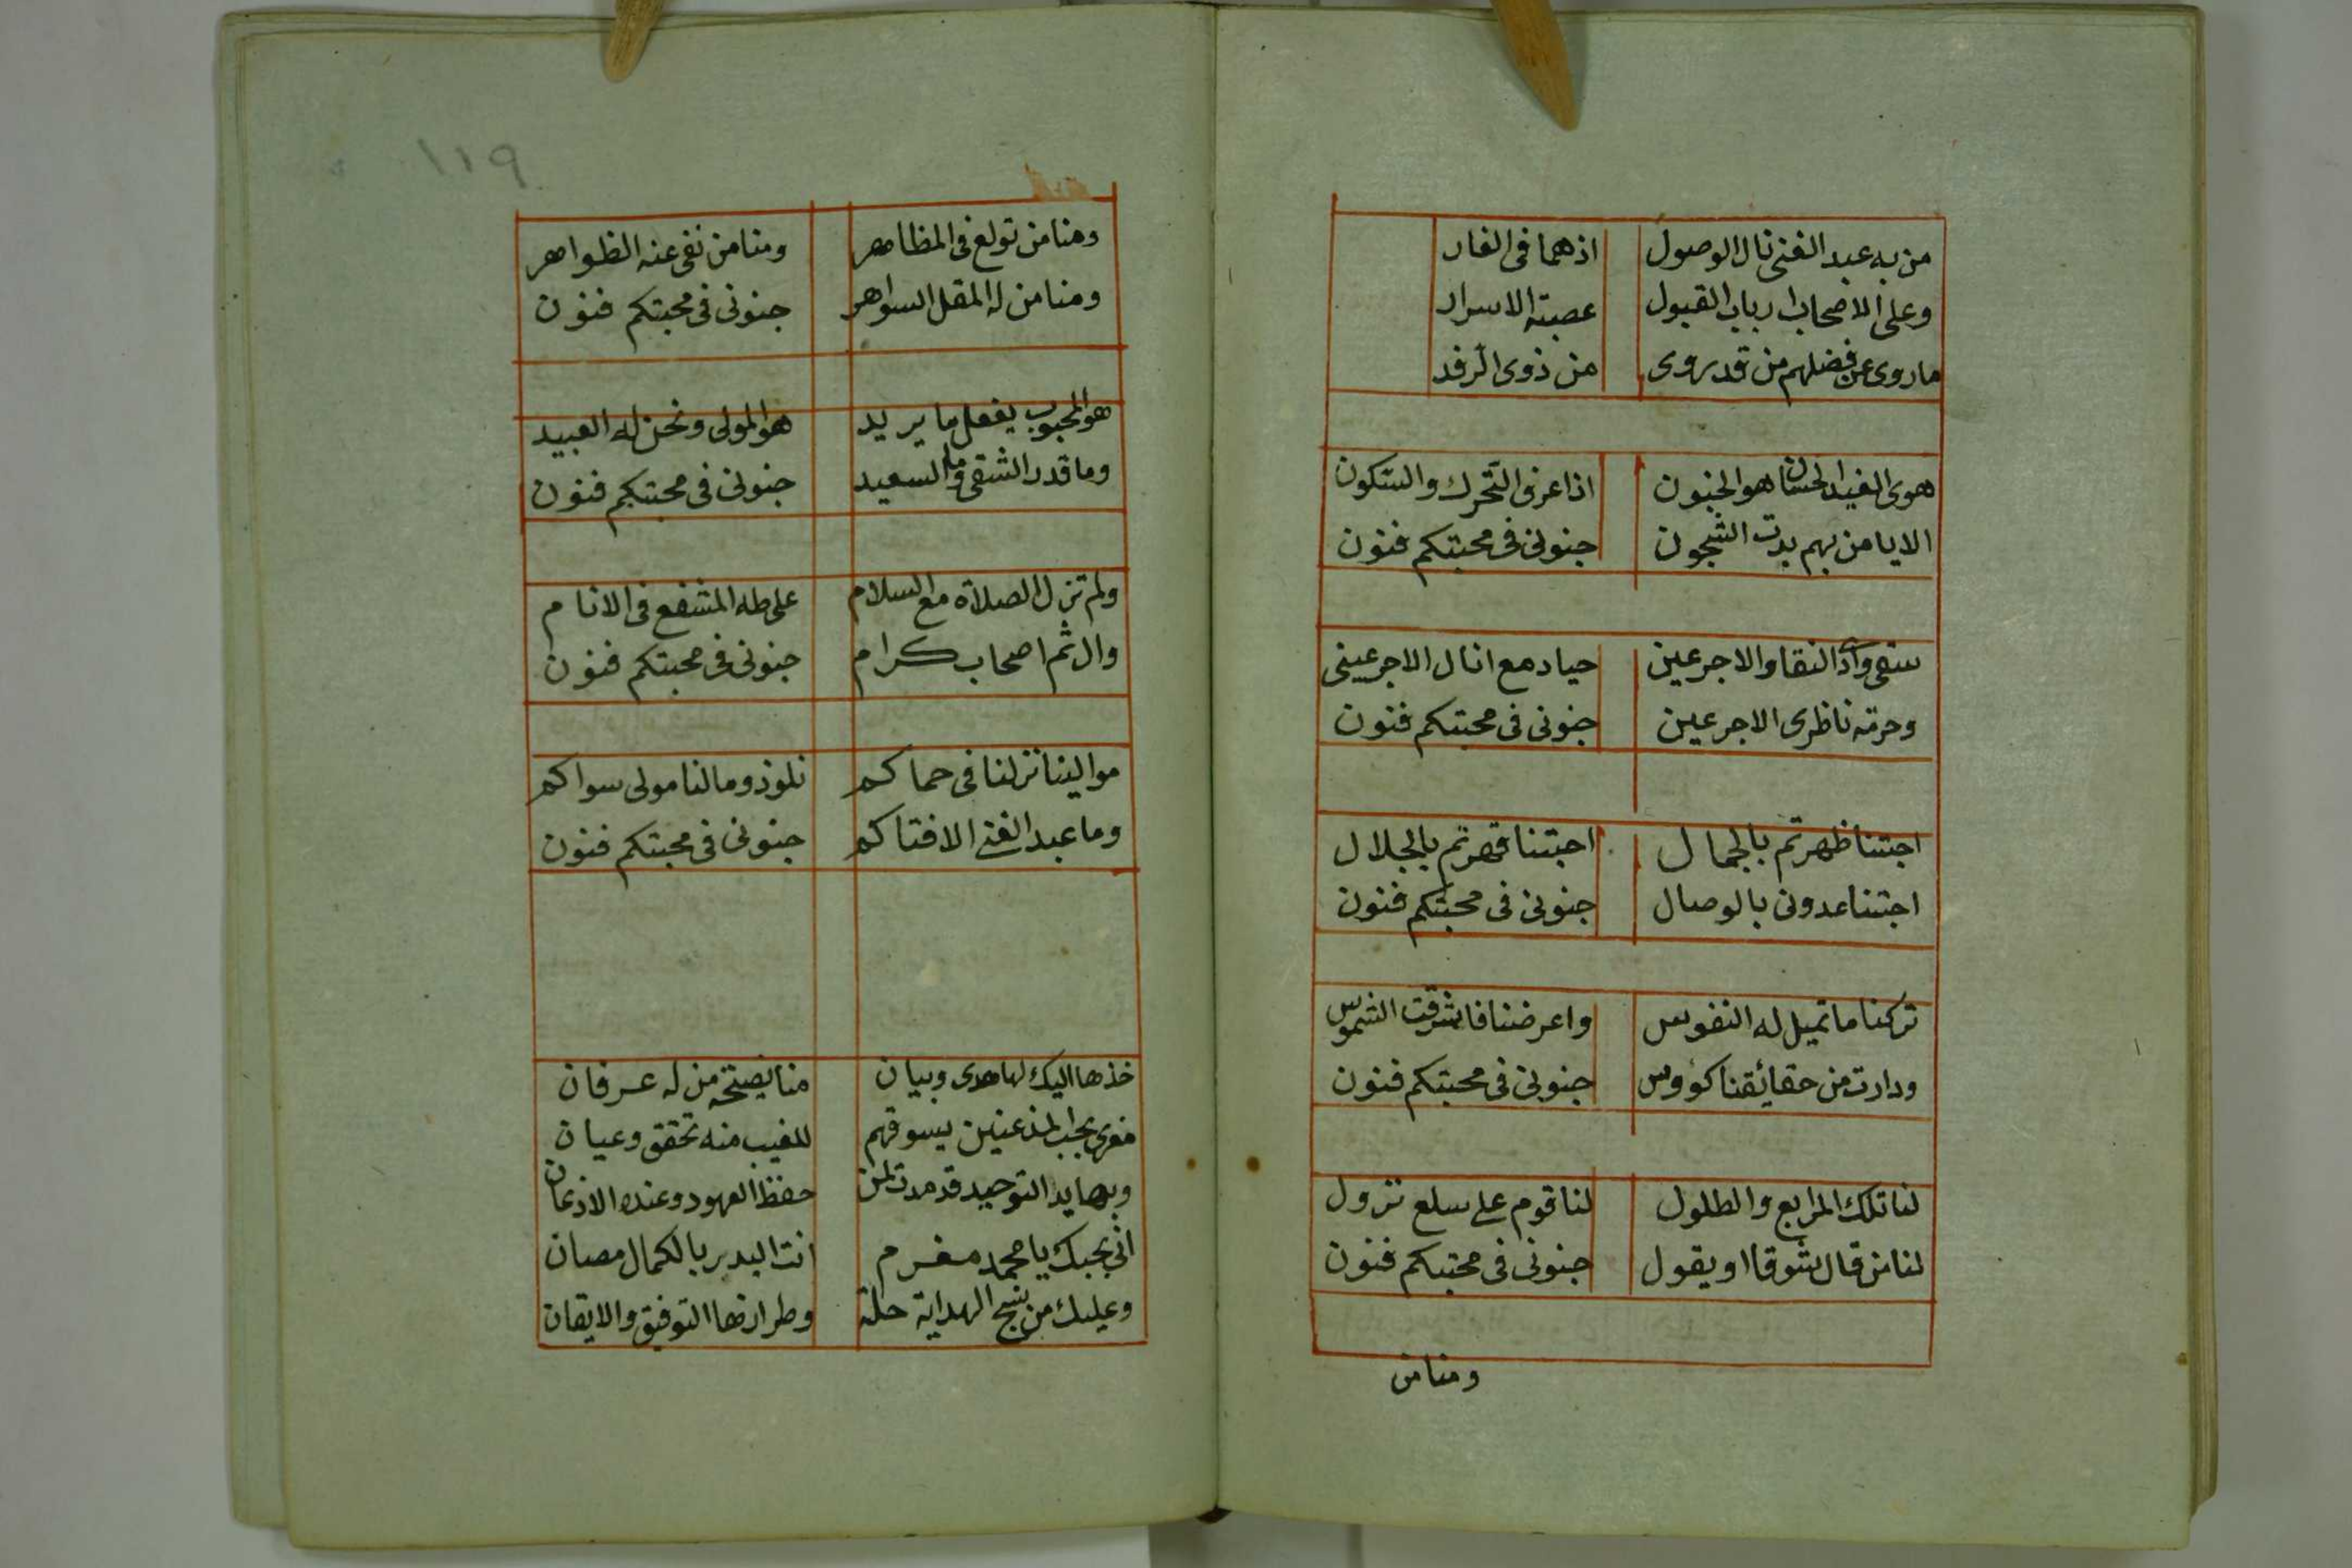 من به عبد الغنى نال الوصول اذهما فى الغار
وعلى الاصحاب ارباب القبول عصبته الاسرار
ما روى عن فضلهم من قد يروى من ذوى الرفد
هوى الغيد الحسان هو الجنون اذا عرف التحرك والسكون
الا يا من بهم بدت الشجون جنونى فى محبتكم فنون
سقى وادى النقا والاجرعين حيا دمع انال الاجرعينى
وحرمة ناظرى الاجرعين جنونى فى محبتكم فنون
احبتنا ظهرتم بالجمال احبتنا قهرتم بالجلال
احبتنا عدونى بالوصال جنونى فى محبتكم فنون
تركنا ما تميل له النفوس واعرضنا فاشرقت الشموس
ودارت من حقائقنا كؤوس جنونى فى محبتكم فنون
لنا تلك المرابع والطلول لنا قوم على سلع نزول
لنا من قال شوقا او يقول جنونى فى محبتكم فنون
ومنا من
١١٩
ومنا من تولع فى المظاهر ومنا من نفى عنه الظواهر
ومنا من له المقل السواهر جنونى فى محبتكم فنون
هو المحبوب يفعل ما يريد هو المولى ونحن له العبيد
وما قدر الشقى وما السعيد جنونى فى محبتكم فنون
ولم تزل الصلاة مع السلام على طه المشفع فى الانام
وال ثم اصحاب كرام جنونى فى محبتكم فنون
موالينا نزلنا فى حماكم نلوذ وما لنا مولى سواكم
وما عبد الغنى الا فتاكم جنونى فى محبتكم فنون
خذها اليك لها هدى وبيان منا نصيحة من له عرفان
مغرى بحب المذعنين يسوقهم للغيب منه تحقق وعيان
وبها يد التوحيد قد مدت لمن حفظ العهود وعنده الاذعان
انى بحبك يا محمد مغرم انت البدير بالكمال مصان
وعليك من نسج الهداية حلة وطرازها التوفيق والايقان